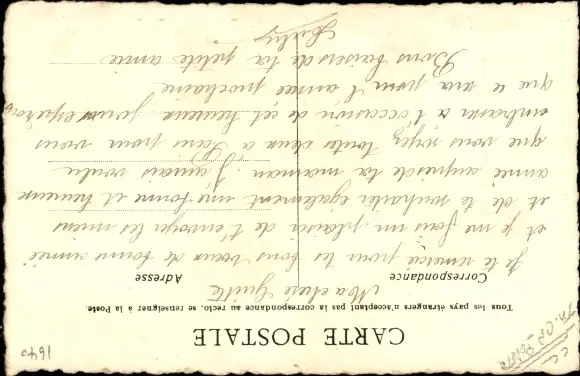 CARTE POSTALE
Tous les pays étrangers n'acceptant pas la correspondance au recto, se renseigner à la Poste.
Correspondance Adresse
Ma chère
Je te remercie pour tes bons vœux de bonne année
et je me fais un plaisir de t'envoyer les miens
et de te souhaiter également une bonne et heureuse
année auprès de ta maman J'aurais voulu
que vous soyez toutes deux à Paris pour vous
embrasser à l'occasion de cet heureux jour espérons
que ce sera pour l'année prochaine
Bons baisers de ta petite amie
1640